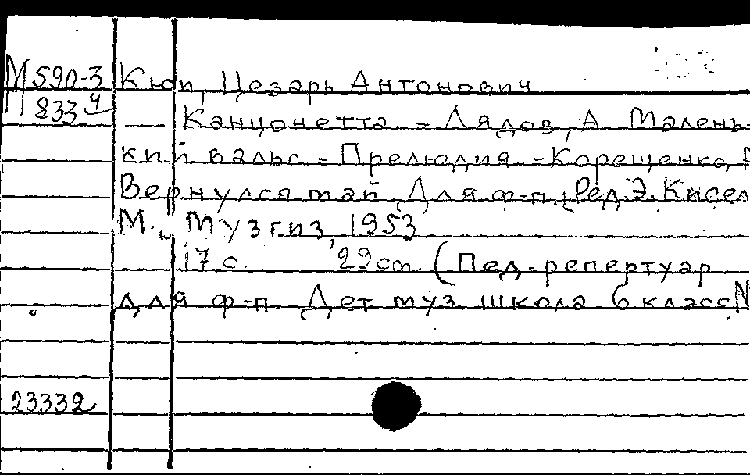 М 590-3 Кюи, Цезарь Антонович
М 833 ч Канцонетта - Лядов, А Малень-
кий вальс - Прелюдия - Корещенко,
Вернулся май Для ф-п. Ред. Э. Кисел
М., Музгиз, 1953
17 с. 29 cm (Пед. репертуар
для ф-п Дет муз школа 6 класс N
23332